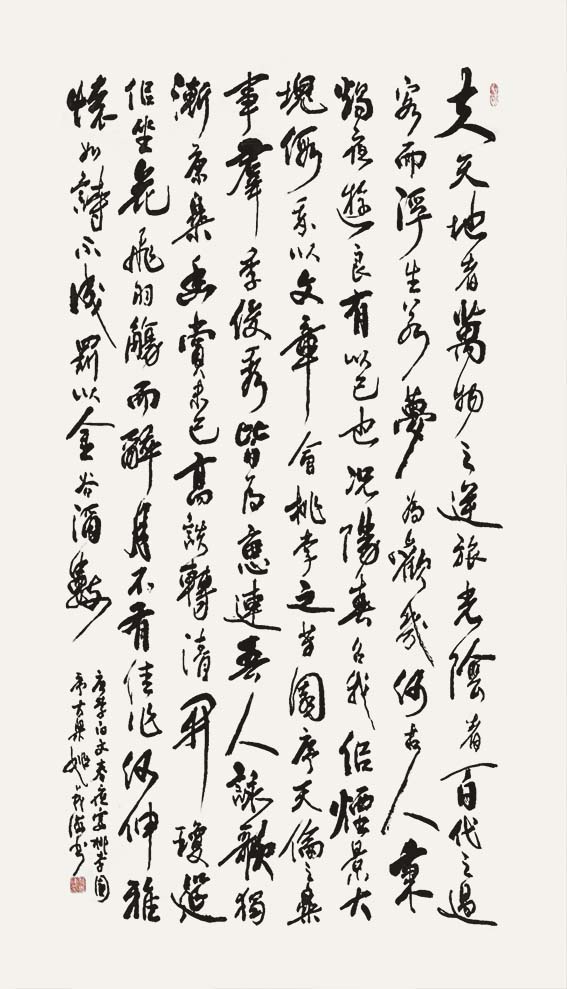 夫天地者萬物之逆旅光陰者百代之過
客而浮生若夢為歡幾何古人秉
燭夜遊良有以已也況陽春召我佀煙景大
塊假我以文章會桃李之芳園序天倫之樂
事羣季俊秀皆為惠連吾人詠歌獨
慚康樂幽賞未已高談轉清開瓊筵
佀坐花飛羽觴而醉月不有佳作何伸雅
懷如詩不成罰以金谷酒數
唐李白文春夜宴桃李園
序